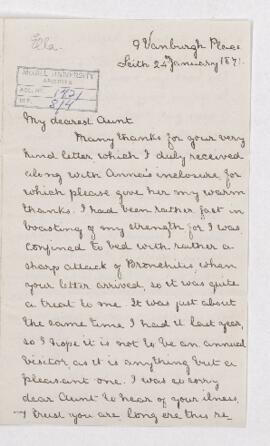 Ella.
9 Vanburgh Place
Leith 24 January 187
McGILL UNIVERSITY
ARCHIVES
ACC. NO. 1421
REF. 8/4
My dearest Aunt
Many thanks for your very
kind letter which I duly received
along with Annie's inclosure, for
which please give her my warm
thanks. I had been rather fast in
boasting of my strength for I was
confined to bed with rather a
sharp attack of Bronchitis, when
your letter arrived, so it was quite
a treat to me. It was just about
the same time I had it last year,
so I hope it is not to be an annual
visitor, as it is anything but a
pleasant one. I was so sorry
dear Aunt to hear of your ilness,
I trust you are long ere this re-